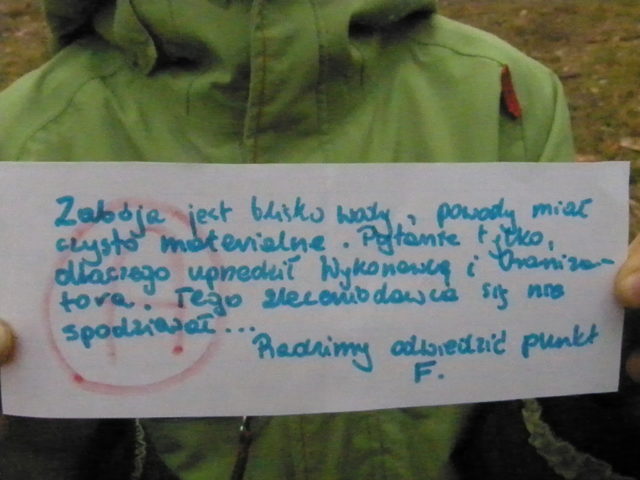 Zabójca jest blisko wody, powody miał
czysto materialne. Pytanie tylko,
dlaczego uprzedził Wykonawcę i Organiza-
tora. Tego zleceniodawca się nie
spodziewał...
Radzimy odwiedzić punkt
F.